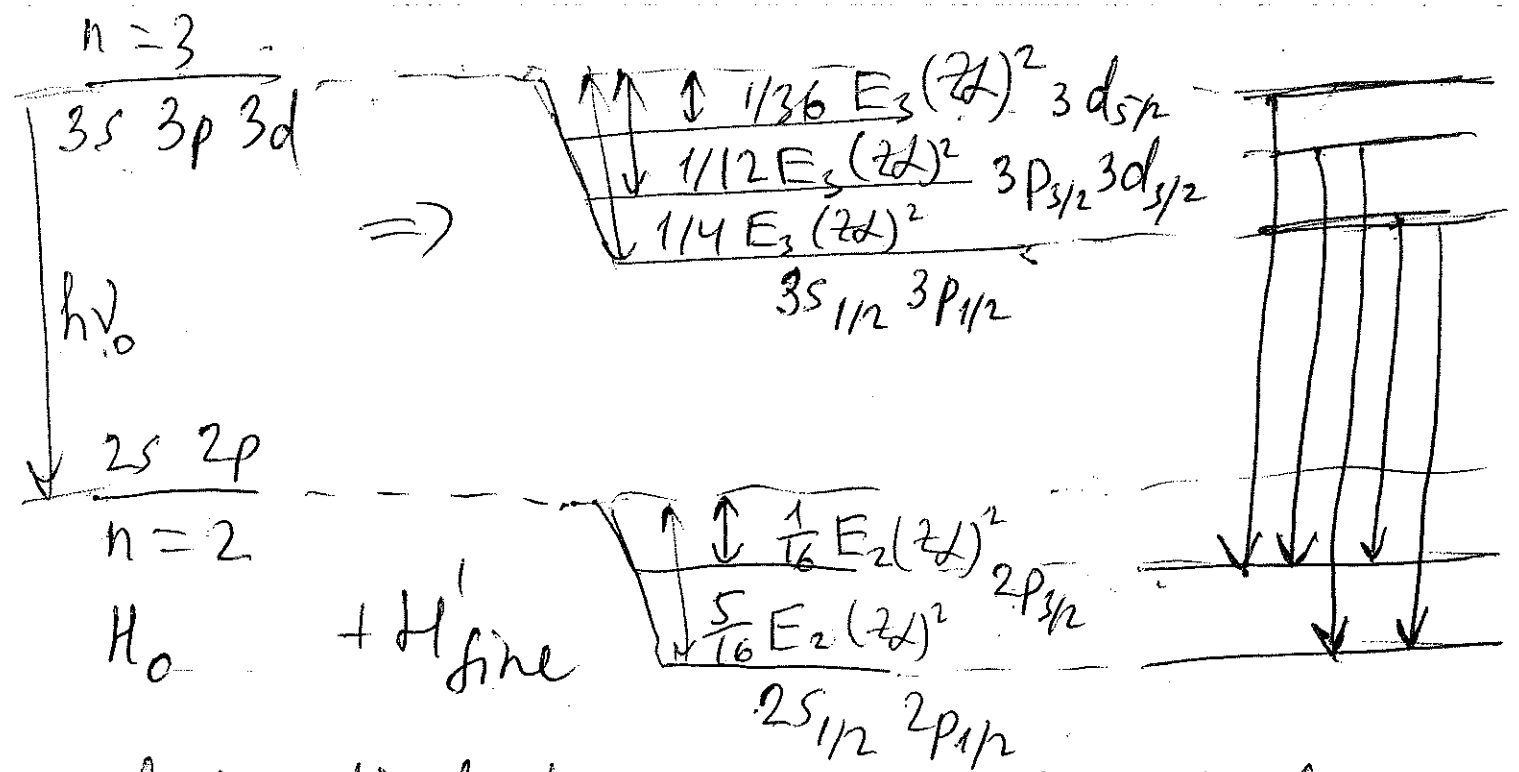 n = 3
3s 3p 3d
1/36 E₃(Zα)² 3d₅/₂
1/12 E₃(Zα)² 3p₃/₂ 3d₃/₂
⇒ 1/4 E₃(Zα)²
3s₁/₂ 3p₁/₂
hν₀
2s 2p
n = 2
1/16 E₂(Zα)² 2p₃/₂
H₀ + H'fine 5/16 E₂(Zα)²
2s₁/₂ 2p₁/₂